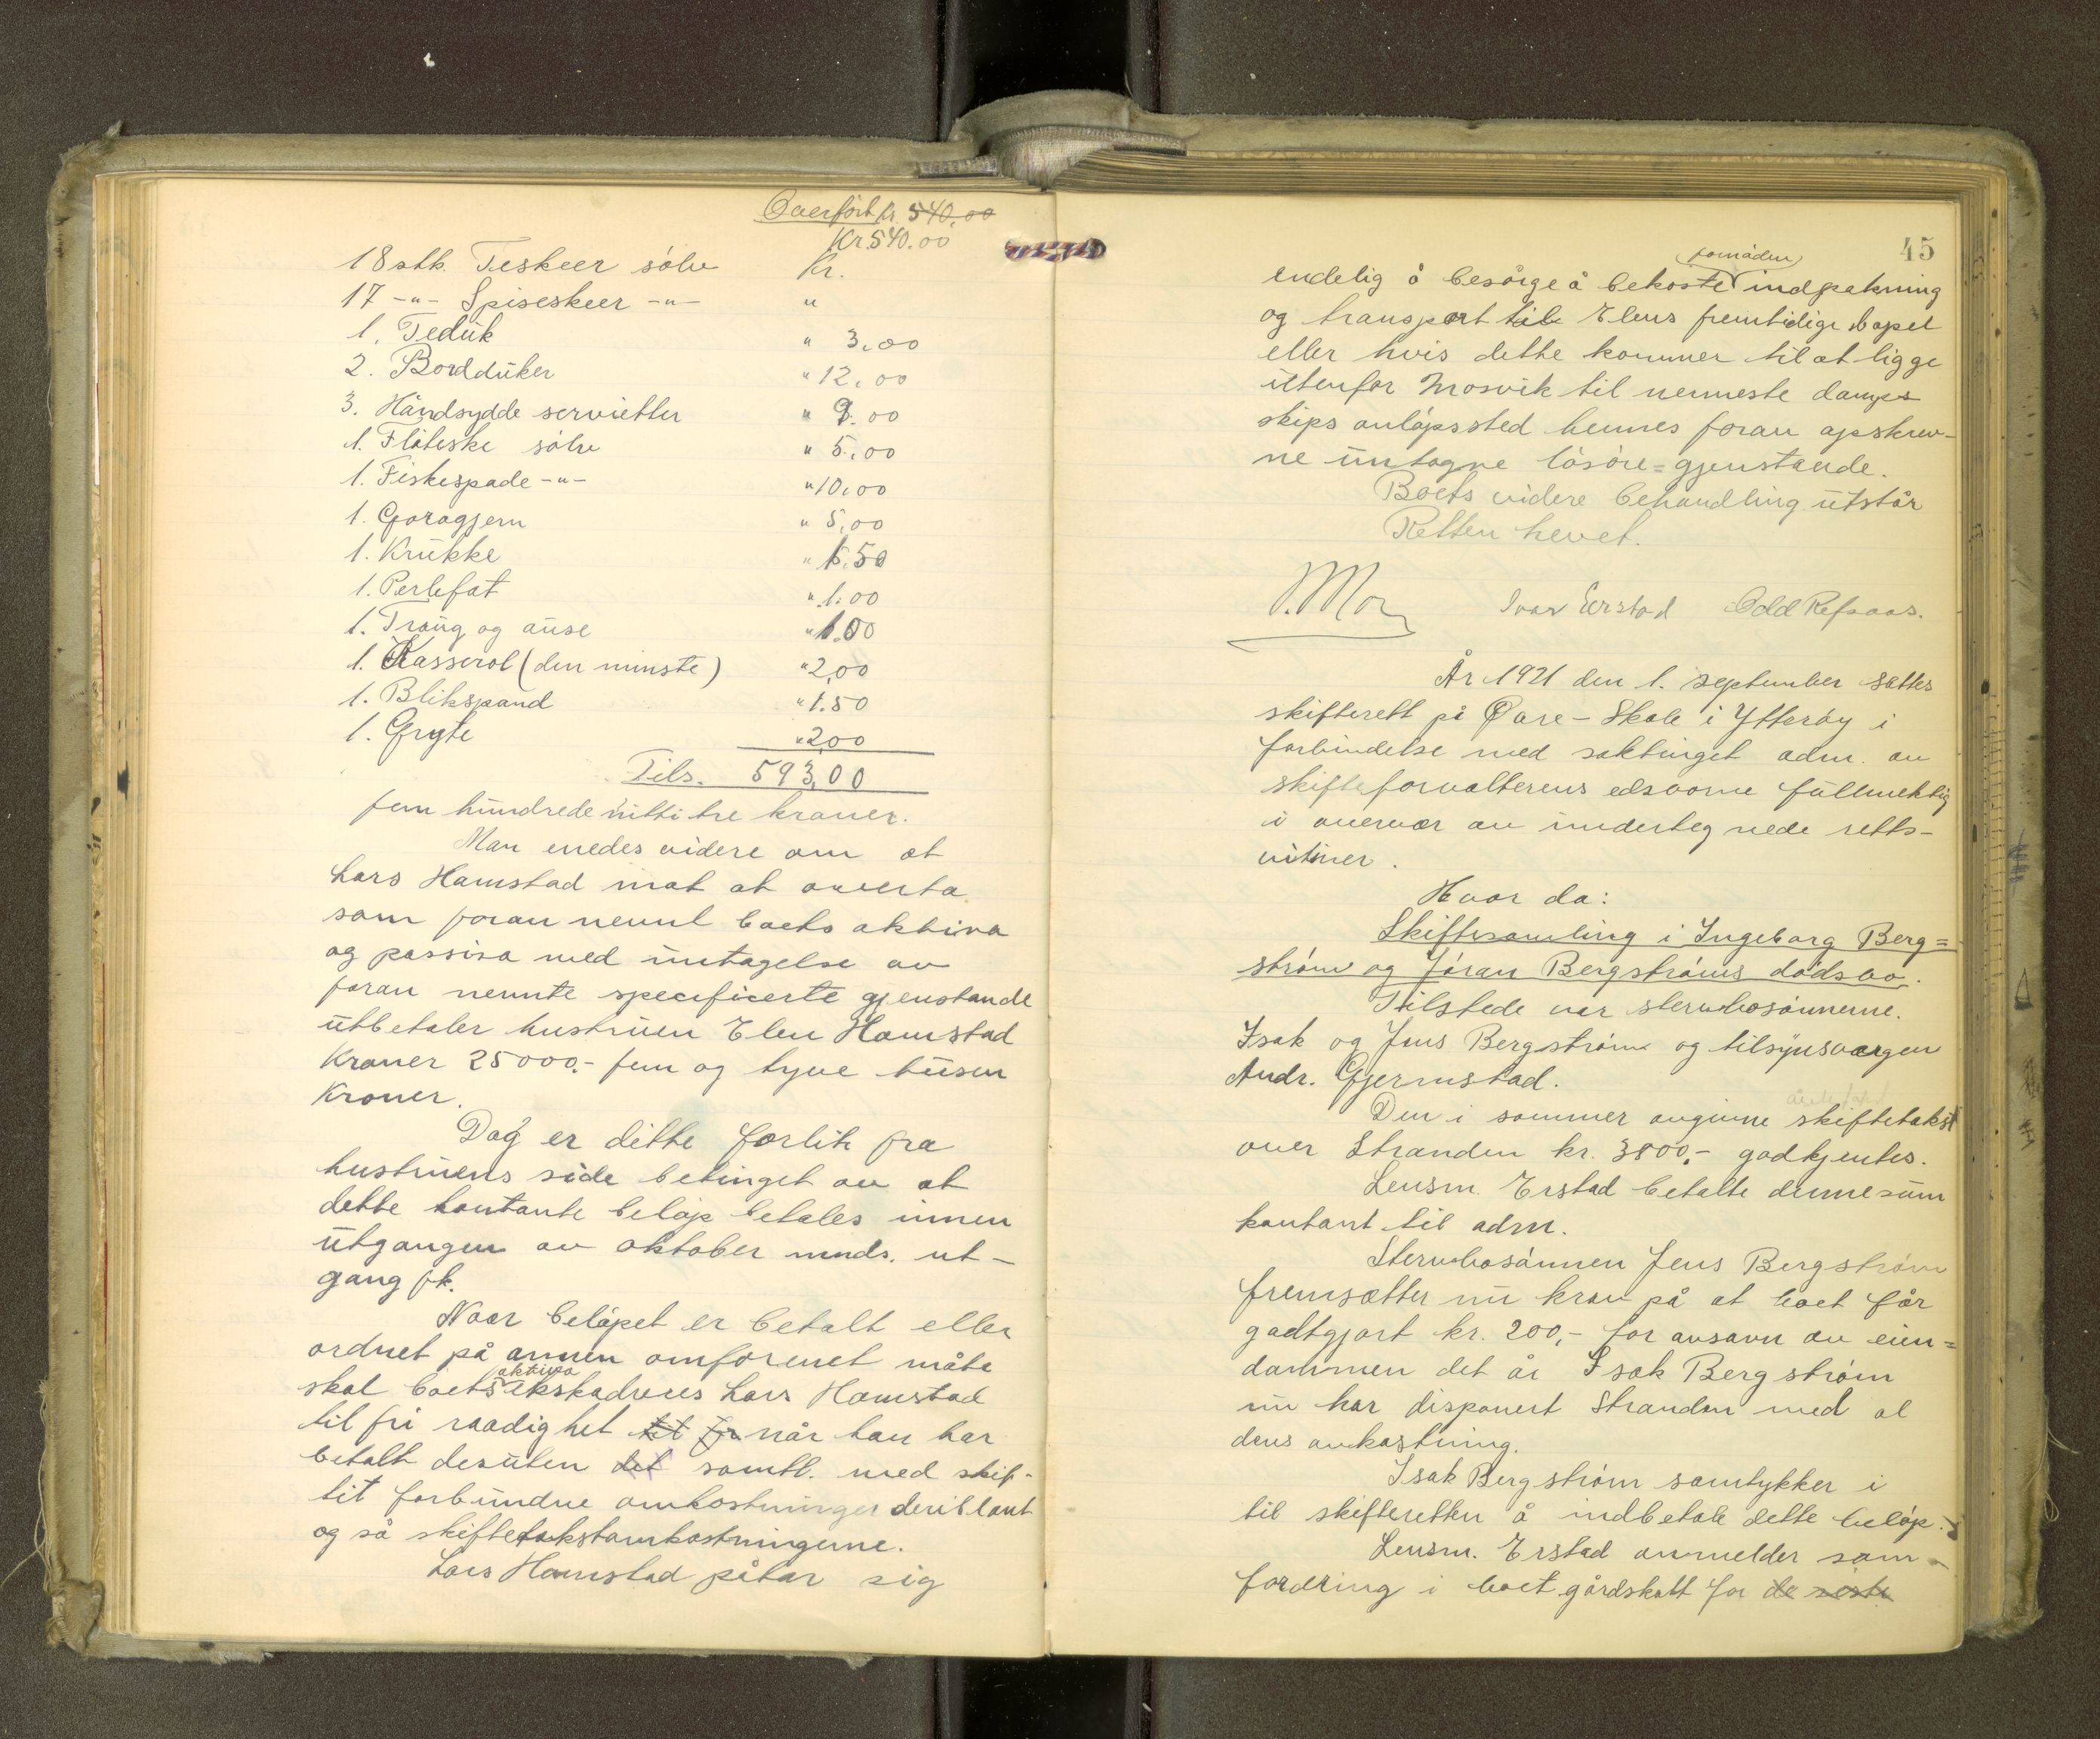 Overført kr 540,00
Kr 540.00
18 stk. Teskeer sølv Kr.
17 -"- Spiseskeer -"- "
1. Teduk " 3.00
2. Bordduker " 12.00
3. Håndsydde servietter " 9.00
1. Fløteske sølv " 5.00
1. Fiskespade -"- " 10.00
1. Gorogjern " 5,00
1. Krukke " 1.50
1. Perlefat " 1.00
1. Traug og ause " 1.00
1. Kasserol (den minste) " 2,00
1. Blikspand " 1.50
1. Gryte " 2,00
Tils. 593,00
fem hundrede nitti tre kroner.
Man enedes videre om at
Lars Hamstad mot at overta
som foran nevnt boets aktiva
og passiva med untagelse av
foran nevnte specificerte gjenstande
utbetaler hustruen Elen Hamstad
Kroner 25000,- fem og tyve tusen
Kroner.
Dog er dette forlik fra
hustruens side betinget av at
dette kontante beløp betales innen
utgangen av oktober mnds. ut-
gang fk.
Naar beløpet er betalt eller
ordnet på annen omforenet måte
skal boets aktiva ekstraderes Lars Hamstad
til fri raadighet til fr når han har
betalt desuten det samtl. med skif-
tit forbundne omkostninger deriblant
og så skiftetakstomkostningerne.
Lars Hamstad påtar sig
45
endelig å besørge å bekoste fornøden indpakning
og transport til Elens fremtidige bopel
eller hvis dette kommer til at ligge
utenfor Mosvik til nermeste damps
skips anløpssted hennes foran opskrev-
ne untagne løsøre=gjenstande.
Boets videre behandling utstår
Retten hevet.
Ivar Erstad Odd Refsaas.
År 1921 den 1. september sattes
skifterett på Øvre-Skole i Ytterøy i
forbindelse med saktinget adm. av
skifteforvalterens edsvorne fullmektig
i overvær av undertegnede retts-
vitner.
Hvor da:
Skiftesamling i Ingeborg Berg=
strøm og Jøran Bergstrøms dødsbo.
Tilstede var stervbosønnerne.
Isak og Jens Bergstrøm og tilsynsvergen
Andr. Gjermstad.
Den i sommer avgivne skiftetakst
over Stranden kr. 3800,- godkjentes.
Lensm. Erstad betalte denne sum
kontant til adm.
Stervbosønnen Jens Bergstrøm
fremsætter nu krav på at boet får
godtgjort kr. 200,- for avsavn av eien=
dommen det år Isak Bergstrøm
nu har disponert Stranden med al
dens avkastning.
Isak Bergstrøm samtykker i
til skifteretten å indbetale dette beløp.
Lensm. Erstad anmelder som
fordring i boet gårdskatt for de siste